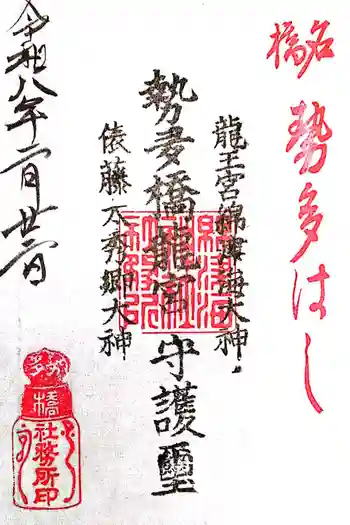 名橋
勢多はし
龍王宮錦環海大神
勢多橋龍宮守護璽
俵藤太秀郷大神
令和八年二月廿二日
勢多
橋
社務所印